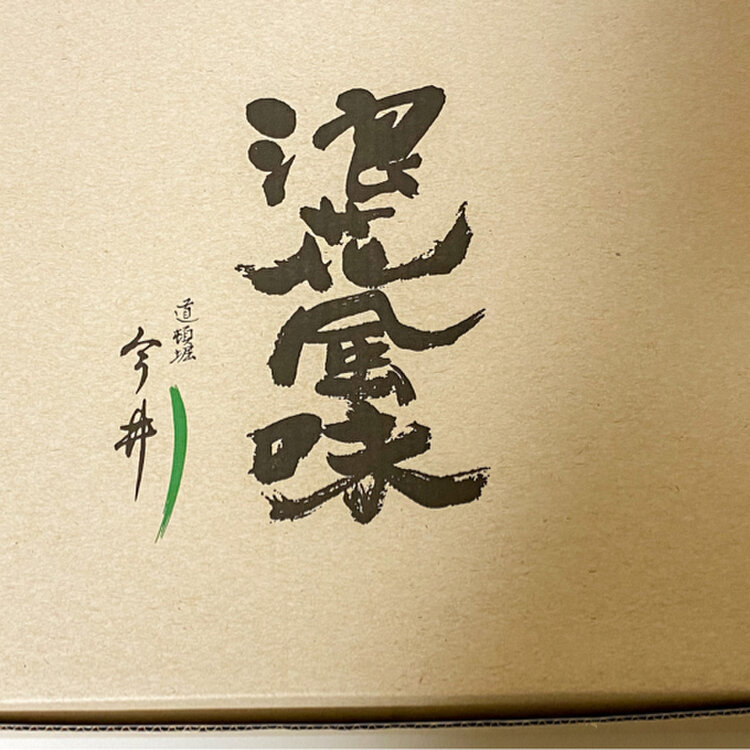 浪花風味
道頓堀
今井